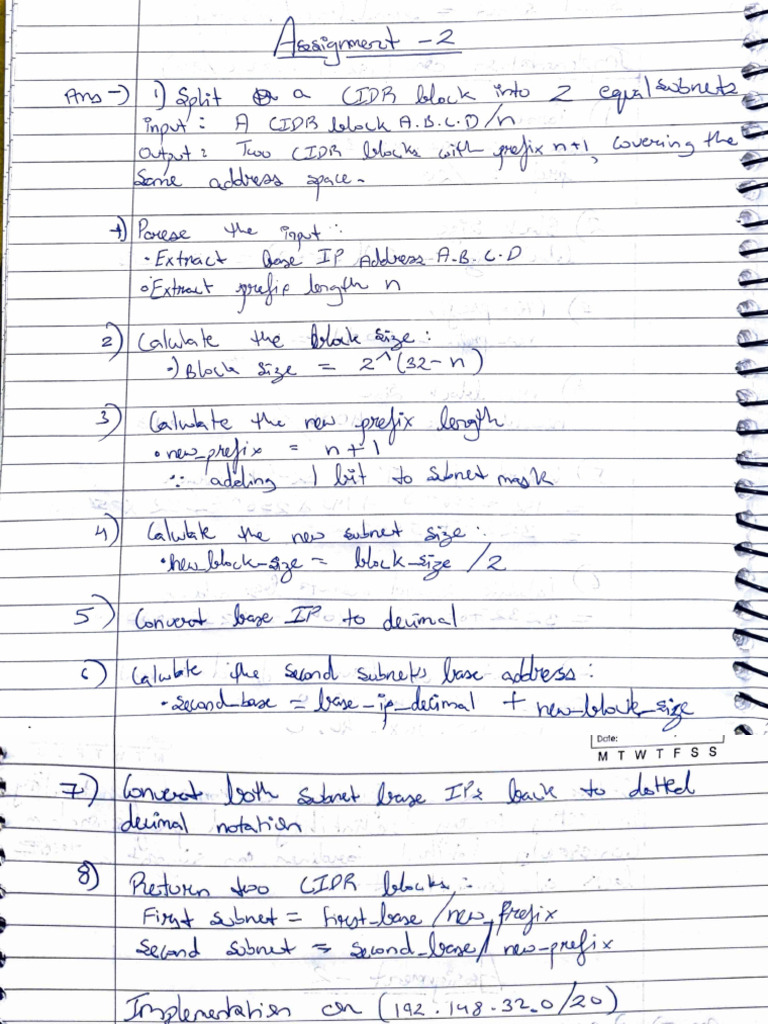 Assignment - 2
Ans -) 1) Split a CIDR block into 2 equal subnets
input : A CIDR block A.B.C.D/n
Output : Two CIDR blocks with prefix n+1, covering the
Same address space.
1) Parse the input :
• Extract base IP Address A.B.C.D
• Extract prefix length n
2) Calculate the block size :
•) Block Size = 2^(32-n)
3) Calculate the new prefix length
• new_prefix = n+1
∵ adding 1 bit to subnet mask
4) Calculate the new subnet size :
• new_block_size = block_size /2
5) Convert base IP to decimal
6) Calculate the second subnets base address :
• second_base = base_ip_decimal + new_block_size
Date:
M T W T F S S
7) Convert both subnet base IPs back to dotted
decimal notation
8) Return two CIDR blocks :
First subnet = first_base/new_prefix
Second subnet = second_base/new-prefix
Implementation on (192.148.32.0/20)